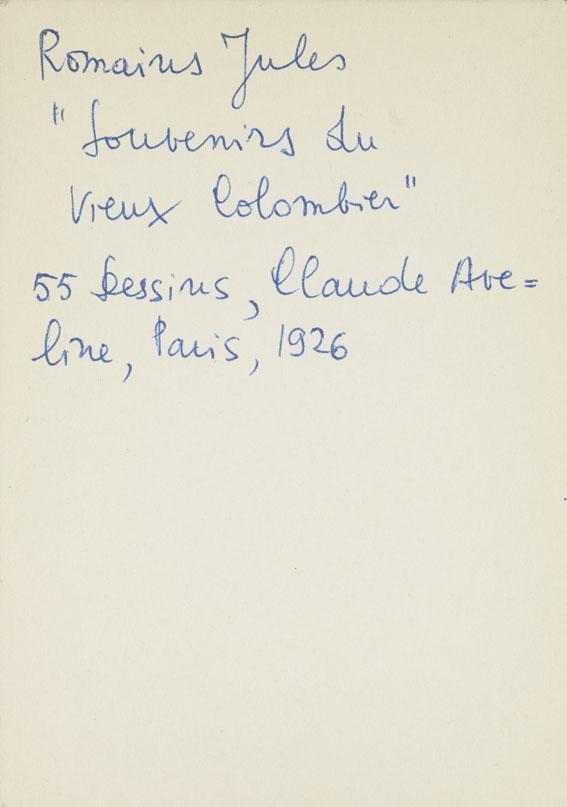 Romains Jules
"Souvenirs du
Vieux Colombier"
55 Dessins, Claude Ave=
line, Paris, 1926